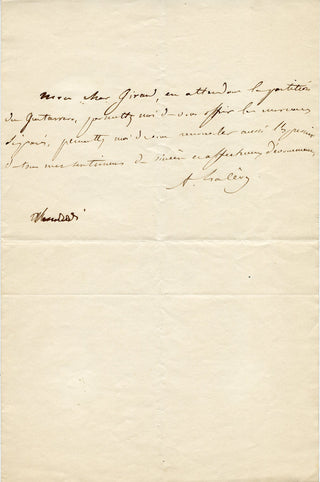 Mon cher Girard, en attendant la partition
du Guitarrero, permettez moi de vous offrir les morceaux
séparés, permettez moi de vous renouveler aussi l'expression
de tous mes sentiments de sincère et affectueux dévouement,
F. Halévy
Vendredi